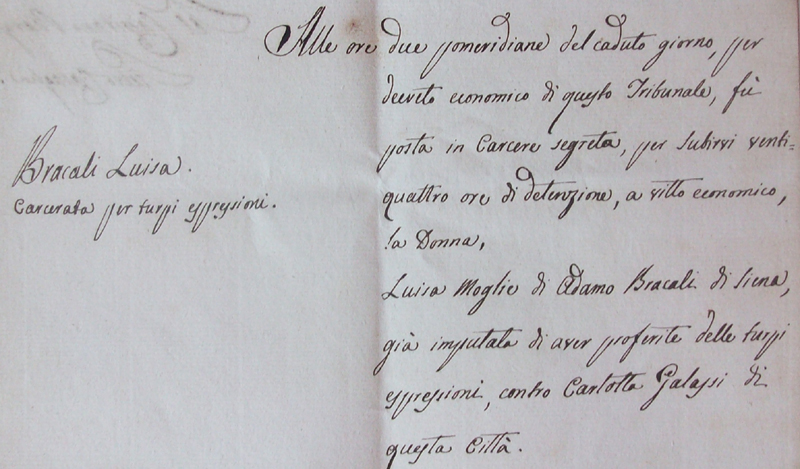 Alle ore due pomeridiane del caduto giorno, per
decreto economico di questo Tribunale, fù
posta in Carcere segreta, per subirvi venti=
quattro ore di detenzione, a vitto economico,
la Donna,
Luisa Moglie di Adamo Bracali di Siena,
già imputata di aver proferite delle turpi
espressioni, contro Carlotta Galassi di
questa Città.
Bracali Luisa.
Carcerata per turpi espressioni.